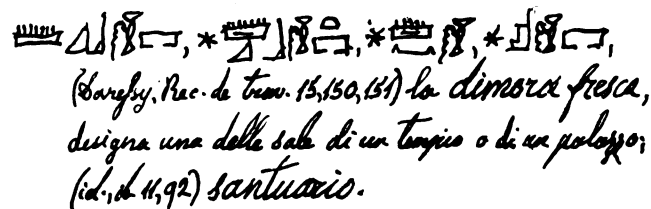 (Daressy, Rec. de trav. 15,150,151) la dimora fresca,
designa una delle sale di un tempio o di un palazzo;
(id., ib 11,92) santuario.